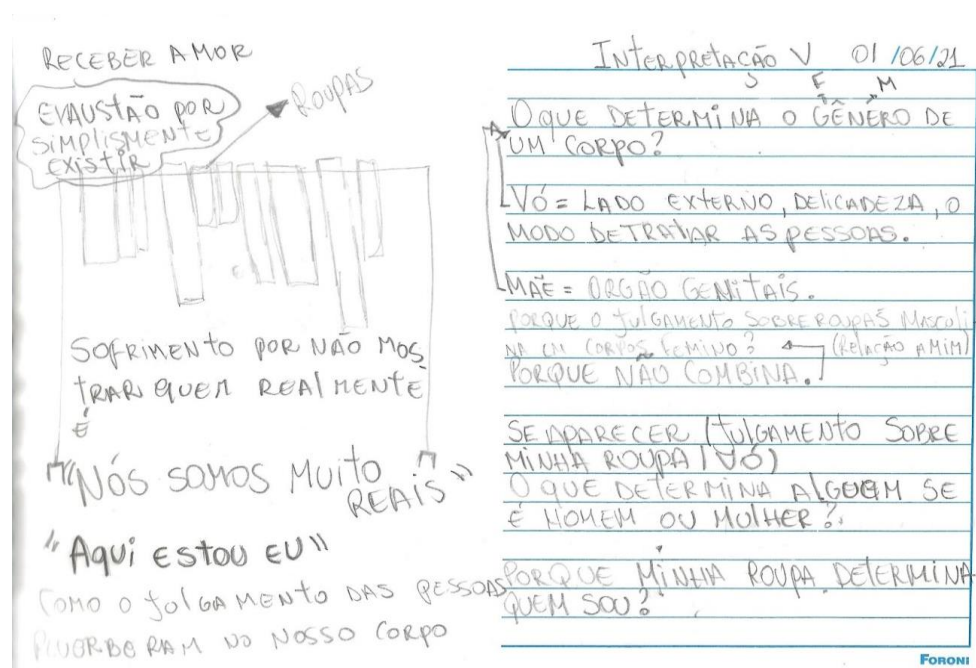 RECEBER AMOR
EVAUSTÃO POR
SIMPLISMENTE
EXISTIR
ROUPAS
SOFRIMENTO POR NÃO MOS
TRAR QUEM REALMENTE
É
"NÓS SOMOS MUITO
REAIS"
"AQUI ESTOU EU"
COMO O JULGAMENTO DAS PESSOAS
NO NOSSO CORPO
INTERPRETAÇÃO V 01/06/21
F M
O QUE DETERMINA O GÊNERO DE
UM CORPO?
VÓ = LADO EXTERNO, DELICADEZA, O
MODO DE TRATAR AS PESSOAS.
MÃE = ORGÃO GENITAIS.
PORQUE O JULGAMENTO SOBRE ROUPAS MASCULI
NA EM CORPOS FEMINO? (RELAÇÃO A MIM)
PORQUE NÃO COMBINA.
SE APARECER (JULGAMENTO SOBRE
MINHA ROUPA / VÓ)
O QUE DETERMINA ALGUEM SE
É HOMEM OU MULHER?
PORQUE MINHA ROUPA DETERMINA
QUEM SOU?
FORONI